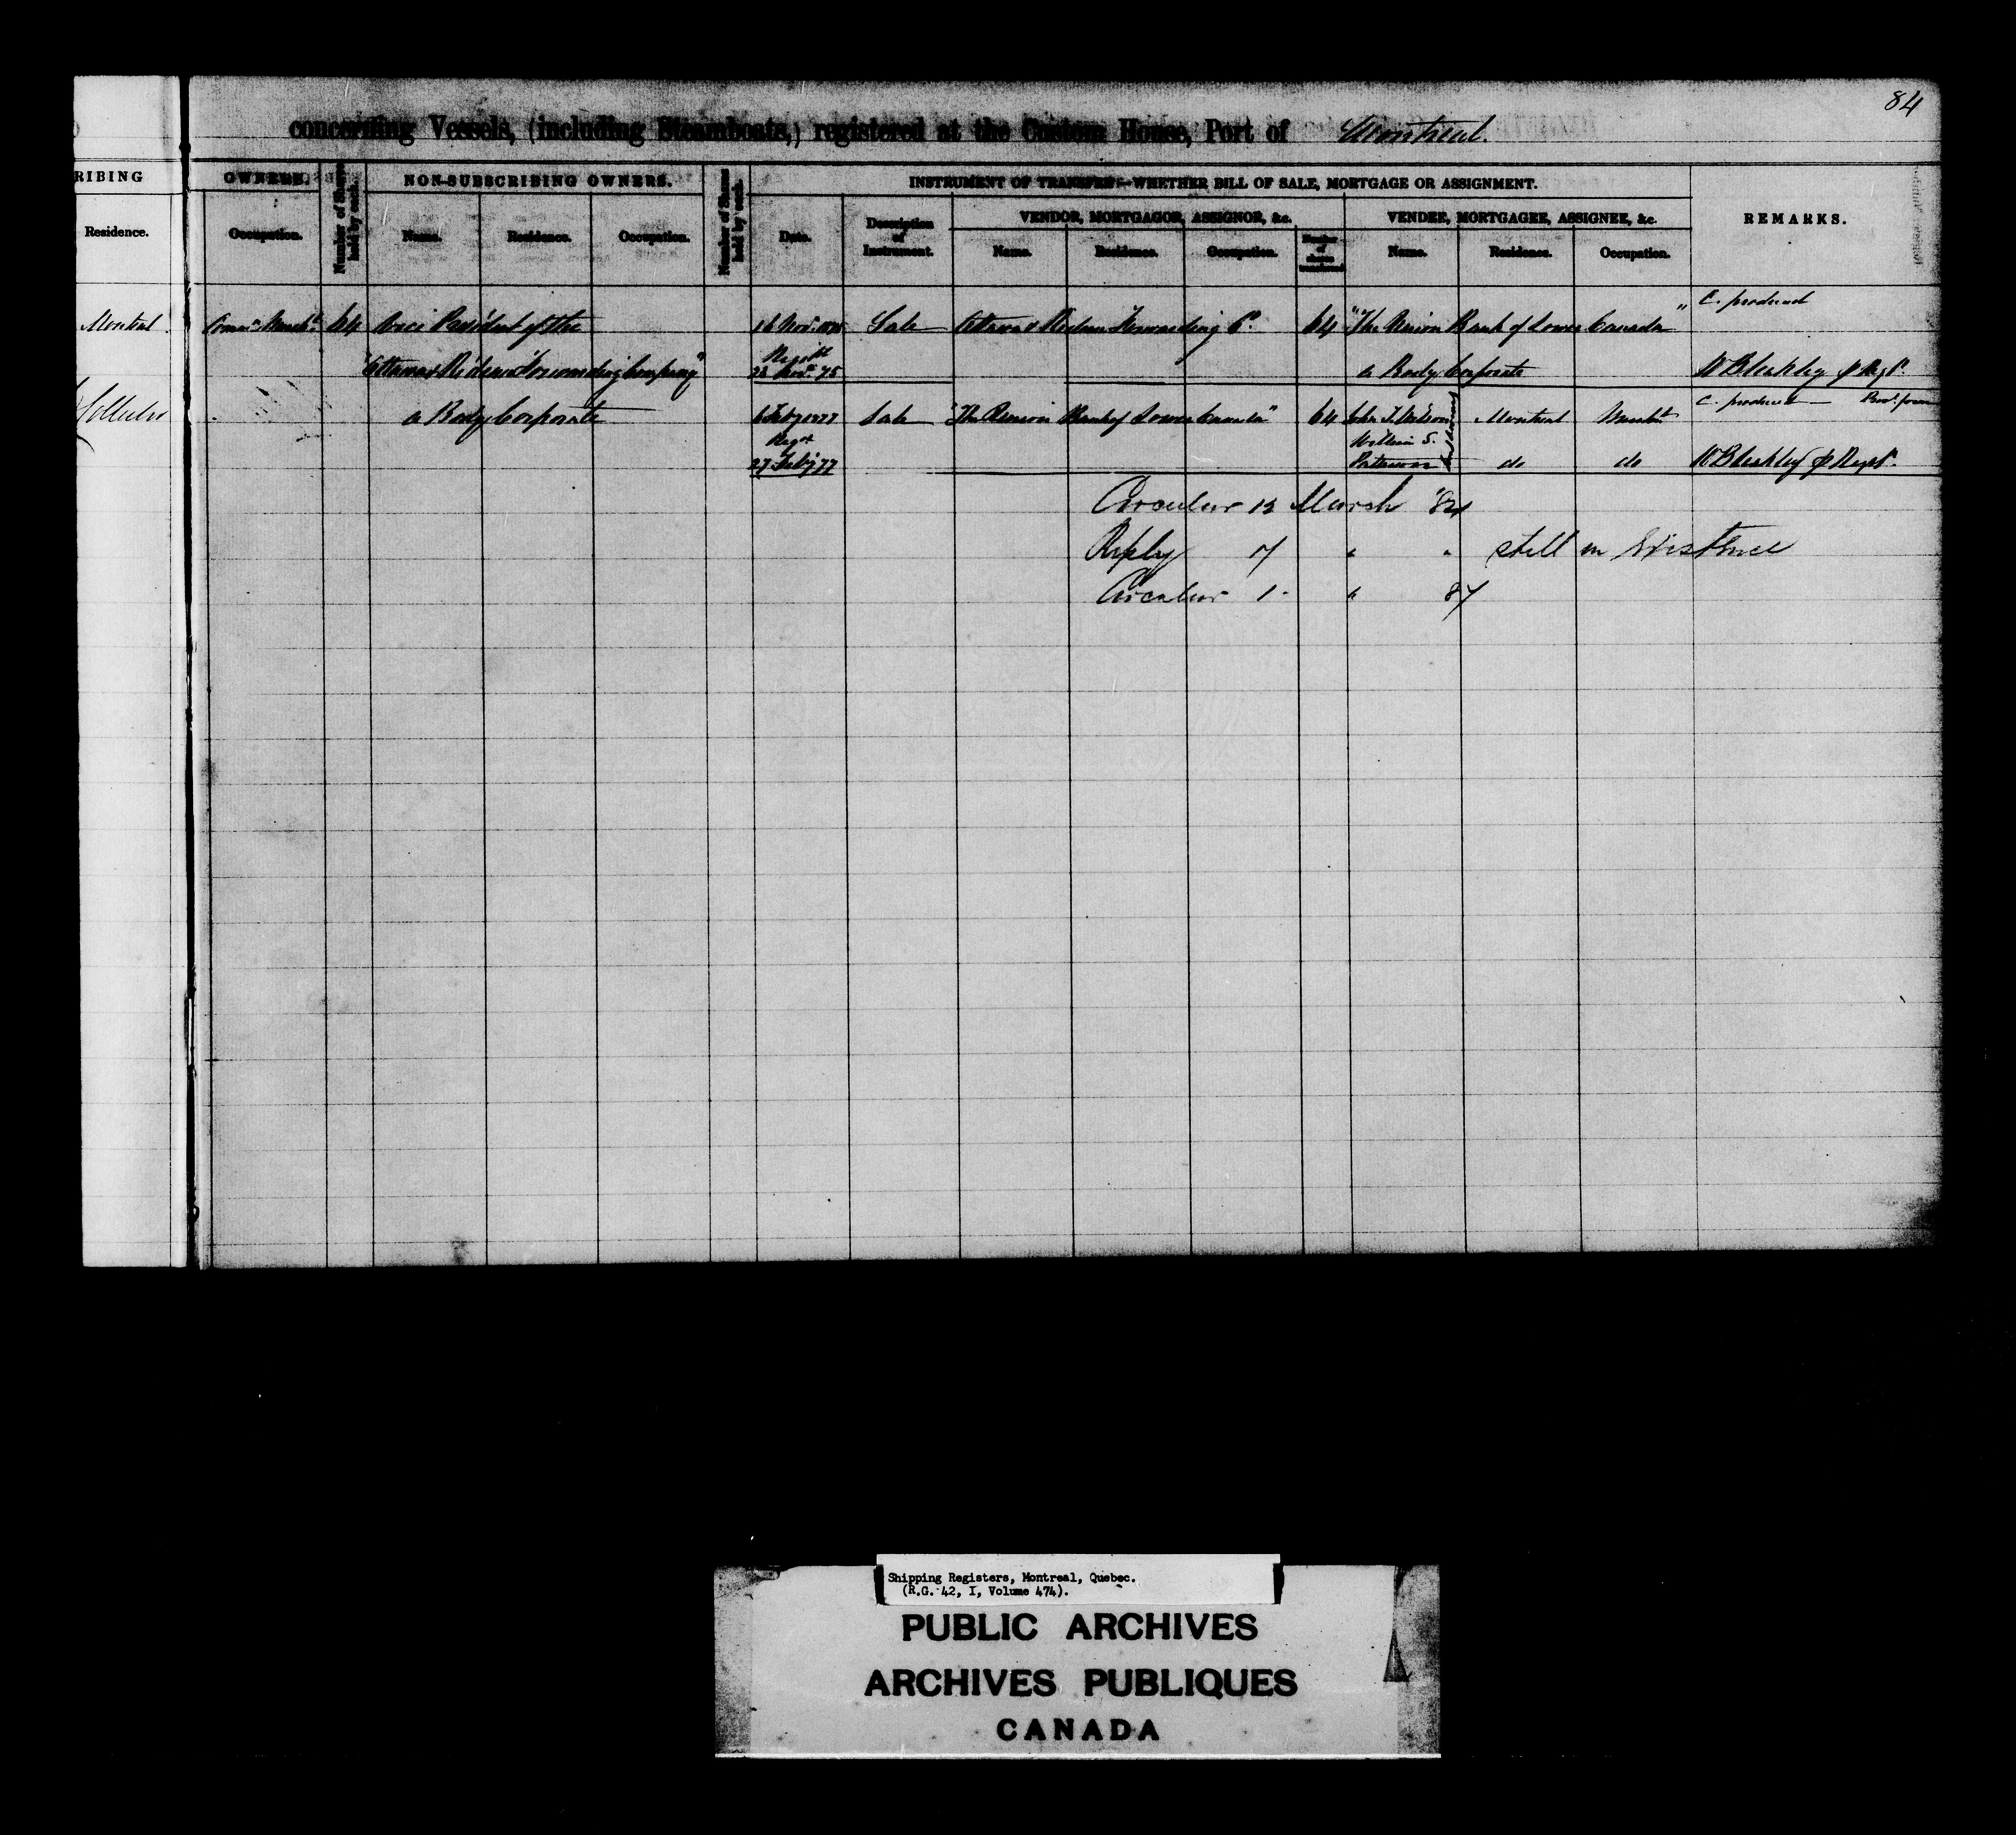 84
concerning Vessels, (including Steamboats,) registered at the Custom House, Port of Montreal.
RIBING OWNERS. Number of Shares held by each. NON-SUBSCRIBING OWNERS. Number of Shares held by each. INSTRUMENT OF TRANSFER—WHETHER BILL OF SALE, MORTGAGE OR ASSIGNMENT. REMARKS.
VENDOR, MORTGAGOR, ASSIGNOR, &c. VENDEE, MORTGAGEE, ASSIGNEE, &c.
Residence. Occupation. Name. Residence. Occupation. Date. Description of Instrument. Name. Residence. Occupation. Number of shares transferred. Name. Residence. Occupation.
C. produced
Montreal Comn Mercht 64 Vice President of the 16 Novr 1875 Sale Ottawa & Rideau Forwarding Co. 64 "The Union Bank of Lower Canada"
"Ottawa & Rideau Forwarding Company" Regd 23 Novr 75 a Body Corporate W Bleakley p Regr.
a Body Corporate 6 Feby 1877 Sale "The Union Bank of Lower Canada" 64 Montreal Mercht C. produced
Regd 27 Feby 77 William S. Paterson do do W Bleakley p Regr.
Circular 12 March '84
Reply 17 " " still in Existence
Circular 1 " 87
Shipping Registers, Montreal, Quebec.
(R.G. 42, I, Volume 474).
PUBLIC ARCHIVES
ARCHIVES PUBLIQUES
CANADA